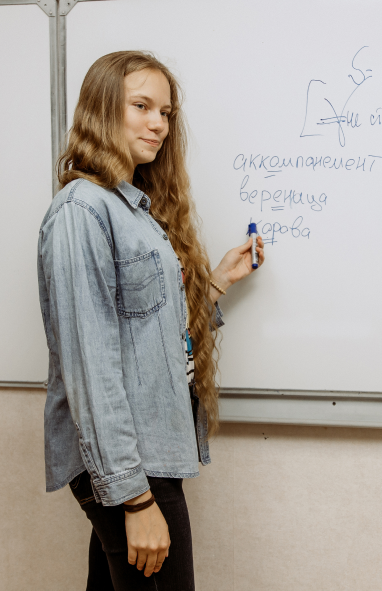 S=
не
аккомпанемент
вереница
корова